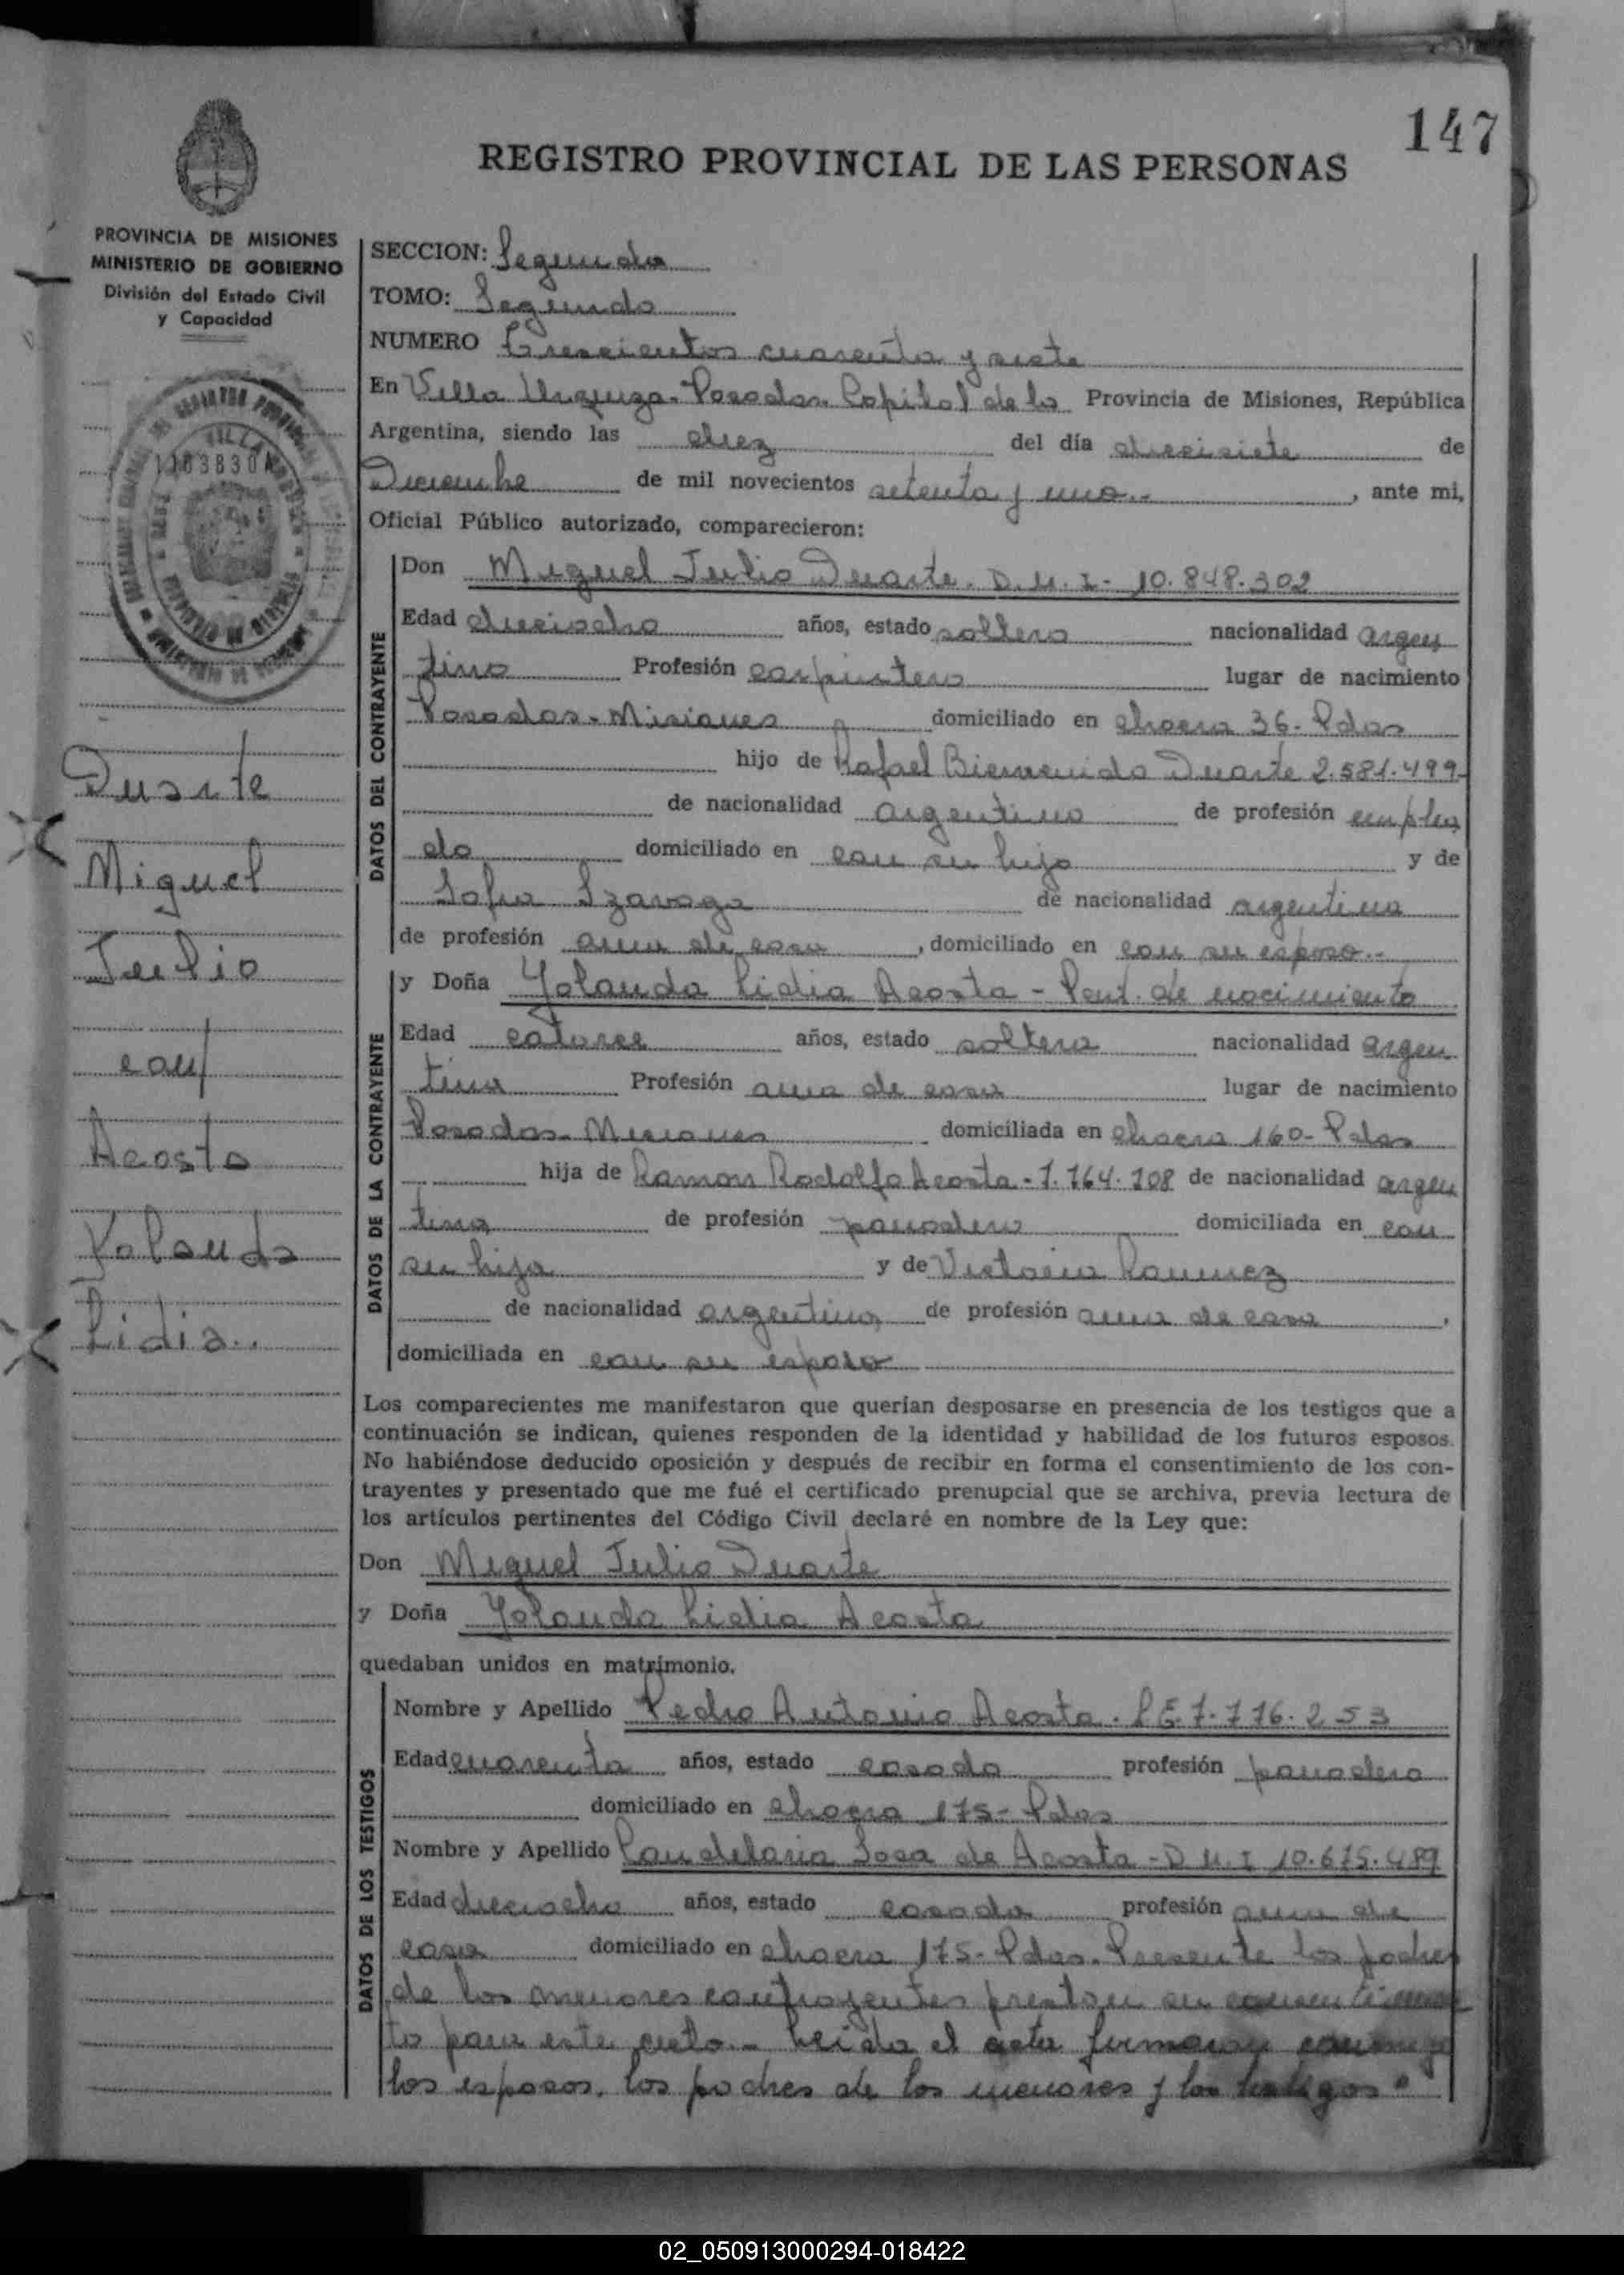 147
REGISTRO PROVINCIAL DE LAS PERSONAS
PROVINCIA DE MISIONES
MINISTERIO DE GOBIERNO
División del Estado Civil
y Capacidad
1103830
VILLA
Duarte
Miguel
Julio
con/
Acosta
Yolanda
Lidia..
SECCION: Segunda
TOMO: Segundo
NUMERO Trescientos cuarenta y siete
En Villa Urquiza. Posadas. Capital de la Provincia de Misiones, República
Argentina, siendo las diez del día diecisiete de
Diciembre de mil novecientos setenta y uno.-, ante mi,
Oficial Público autorizado, comparecieron:
DATOS DEL CONTRAYENTE
Don Miguel Julio Duarte. D.N.I- 10.848.302
Edad dieciocho años, estado soltero nacionalidad argen
tino Profesión carpintero lugar de nacimiento
Posadas-Misiones domiciliado en chacra 36- Pdas
hijo de Rafael Bienvenido Duarte 2.581.499-
de nacionalidad argentino de profesión emplea
do domiciliado en con su hijo y de
Sofia de nacionalidad argentina
de profesión ama de casa, domiciliado en con su esposo.-
DATOS DE LA CONTRAYENTE
y Doña Yolanda Lidia Acosta - Part. de nacimiento
Edad catorce años, estado soltera nacionalidad argen
tina Profesión ama de casa lugar de nacimiento
Posadas-Misiones domiciliada en chacra 160- Pdas
hija de Ramon Rodolfo Acosta - 7.764.108 de nacionalidad argen
tino de profesión panadero domiciliada en con
su hija y de Victoria Ramirez
de nacionalidad argentina de profesión ama de casa,
domiciliada en con su esposo
Los comparecientes me manifestaron que querían desposarse en presencia de los testigos que a
continuación se indican, quienes responden de la identidad y habilidad de los futuros esposos.
No habiéndose deducido oposición y después de recibir en forma el consentimiento de los con-
trayentes y presentado que me fué el certificado prenupcial que se archiva, previa lectura de
los artículos pertinentes del Código Civil declaré en nombre de la Ley que:
Don Miguel Julio Duarte
y Doña Yolanda Lidia Acosta
quedaban unidos en matrimonio.
DATOS DE LOS TESTIGOS
Nombre y Apellido Pedro Antonio Acosta. L.E. 7.776.253
Edad cuarenta años, estado casado profesión panadero
domiciliado en chacra 175- Pdas
Nombre y Apellido Candelaria Sosa de Acosta - D.N.I 10.675.489
Edad dieciocho años, estado casada profesión ama de
casa domiciliado en chacra 175- Pdas. Presente los padres
de los menores contrayentes prestan su consentimien
to para este acto.- Leida el acta firmaron conmigo
los esposos, los padres de los menores y los testigos"
02_050913000294-018422